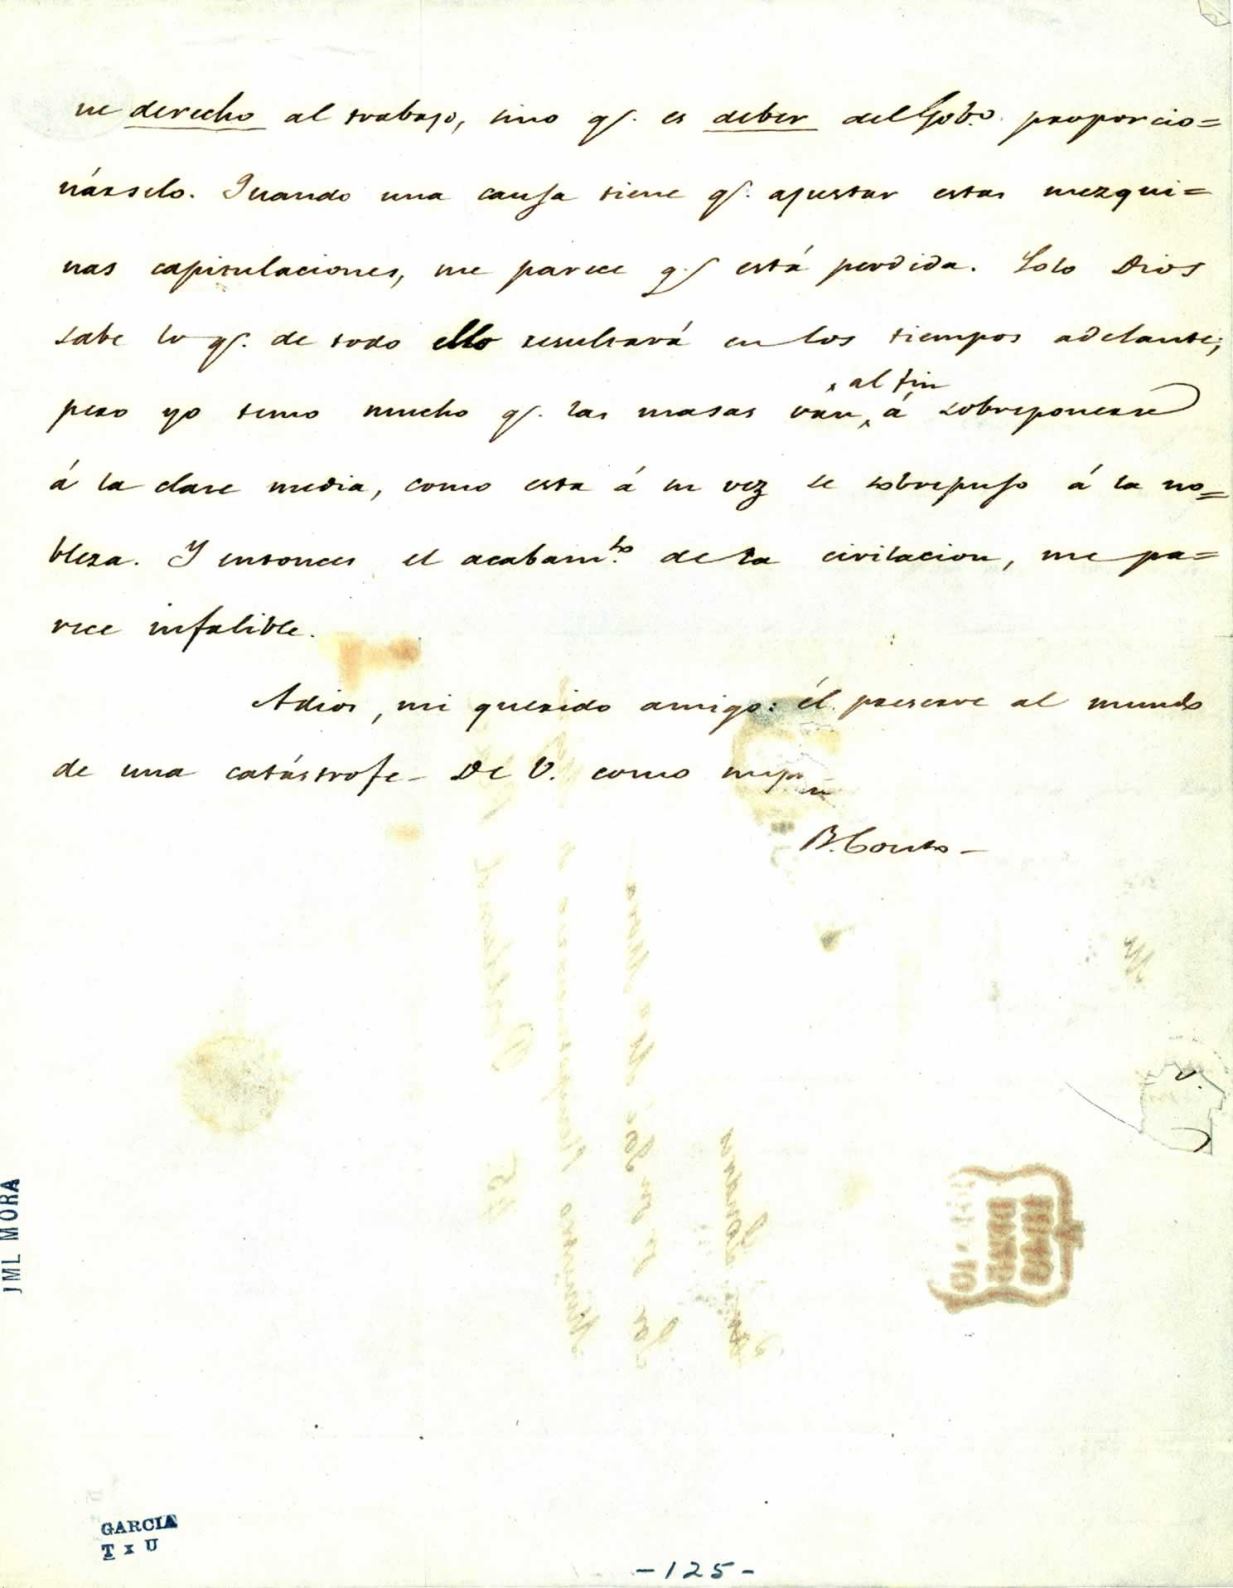 ne derecho al trabajo, sino q.e es deber del Gob.o proporcio=
nárselo. Quando una causa tiene q.e ajustar estas mezqui=
nas capitulaciones, me parece q.e está perdida. Solo Dios
sabe lo q.e de todo ello resultará en los tiempos adelante;
al fin
pero yo temo mucho q.e las masas van á sobreponerse
á la clase media, como esta á su vez se sobrepuso á la no=
bleza. Y entonces el acabam.to de la civilacion, me pa=
rece infalible.
Adios, mi querido amigo: él preserve al mundo
de una catástrofe - De V. como siempre
B. Couto -
JML MORA
GARCIA
T x U
-125-